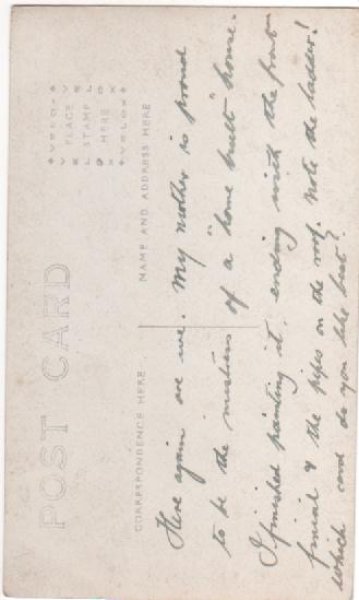 POST CARD
◆ VELOX ◆
PLACE
STAMP
HERE
◆ VELOX ◆
CORRESPONDENCE HERE
NAME AND ADDRESS HERE
Here again are we. My mother is proud
to be the mistress of a "home built" house.
I finished painting it, ending with the front
finial & the pipes on the roof. Note the ladder!
Which card do you like best?